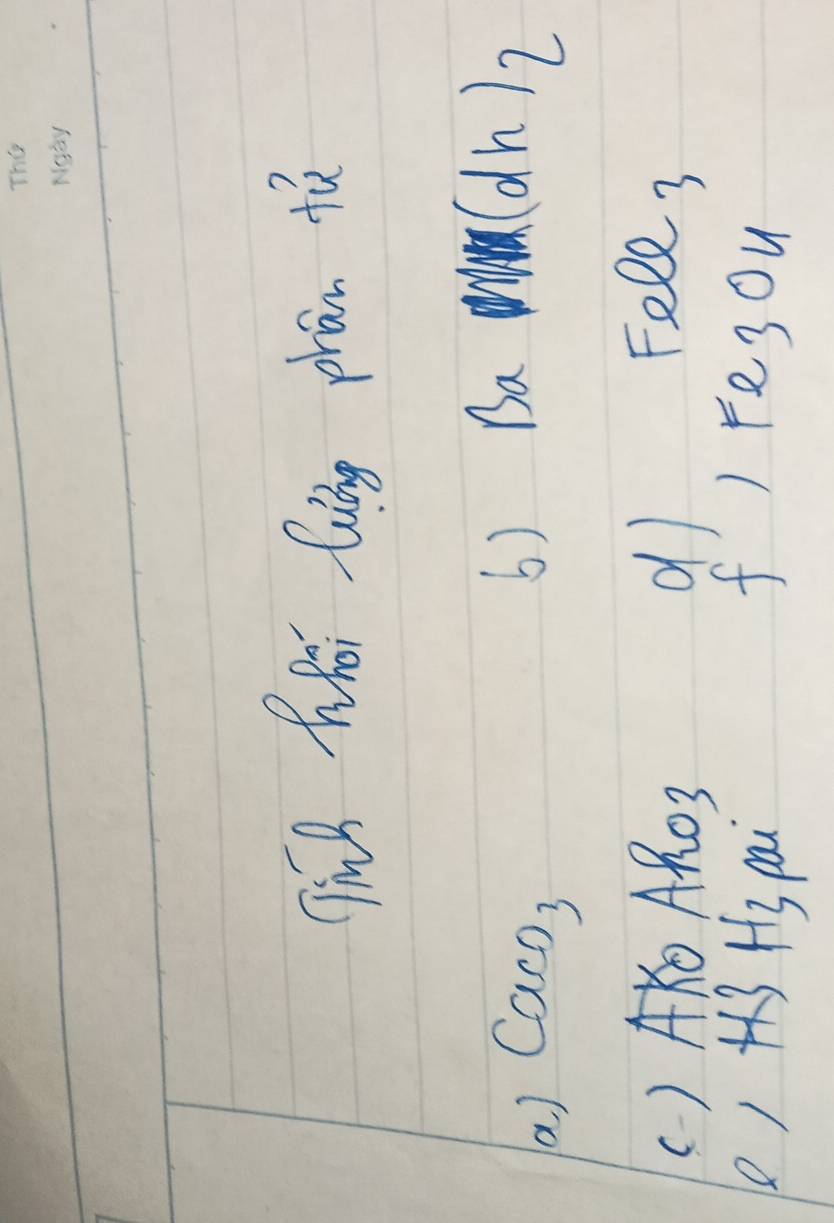 Thứ
Ngày
Tính khối lượng phân tử
a) CaCO3 b) Ba (dh)2
c) AKO AhO3 d) FeCl3
e) H3 H3 poi f) Fe3O4